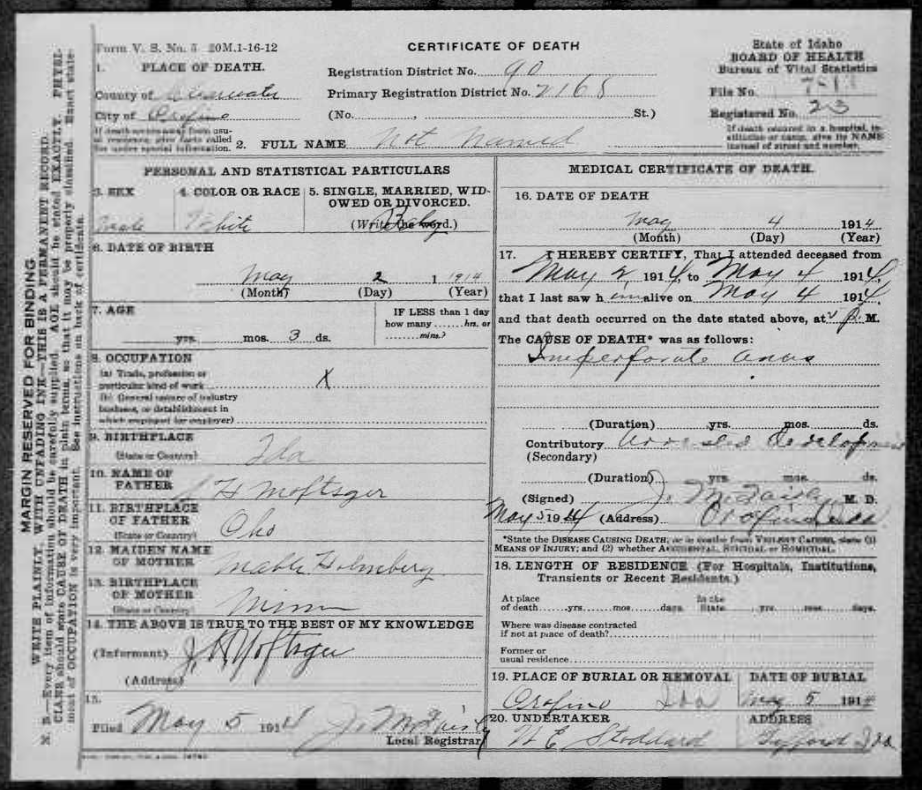 Form V. S. No. 5 20M.1-16-12
CERTIFICATE OF DEATH
State of Idaho
BOARD OF HEALTH
Bureau of Vital Statistics
1. PLACE OF DEATH.
Registration District No. 90
County of Clearwater
Primary Registration District No. 2168
File No.
City of Orofino
(No. St.)
Registered No. 23
If death occurs away from usual residence, give facts called for under special information.
If death occured in a hospital, institution or camp, give its NAME instead of street and number.
2. FULL NAME Not Named
PERSONAL AND STATISTICAL PARTICULARS
3. SEX
Male
4. COLOR OR RACE
White
5. SINGLE, MARRIED, WIDOWED OR DIVORCED.
(Write the word.) Baby
6. DATE OF BIRTH
May 2 1 1914
(Month) (Day) (Year)
7. AGE
yrs. mos. 3 ds.
IF LESS than 1 day
how many ....... hrs. or
....... mins.?
8. OCCUPATION
(a) Trade, profession or
particular kind of work X
(b) General nature of industry
business, or establishment in
which employed (or employer)
9. BIRTHPLACE
(State or Country) Ida
10. NAME OF
FATHER J H Moftsger
11. BIRTHPLACE
OF FATHER
(State or Country) Oho
12. MAIDEN NAME
OF MOTHER Mable Holmberg
13. BIRTHPLACE
OF MOTHER
(State or Country) Minn
14. THE ABOVE IS TRUE TO THE BEST OF MY KNOWLEDGE
(Informant) J H Moftsger
(Address)
15.
Filed May 5 1914 J. M. Fairly
Local Registrar
MEDICAL CERTIFICATE OF DEATH.
16. DATE OF DEATH
May 4 1914
(Month) (Day) (Year)
17. I HEREBY CERTIFY, That I attended deceased from
May 2 1914, to May 4 1914,
that I last saw h im alive on May 4 1914,
and that death occurred on the date stated above, at P. M.
The CAUSE OF DEATH* was as follows:
Imperforate anus
(Duration) yrs. mos. ds.
Contributory Arrested Development
(Secondary)
(Duration) yrs. mos. ds.
(Signed) J. M. Fairly, M. D.
May 5 1914 (Address) Orofino, Ida
*State the DISEASE CAUSING DEATH, or in deaths from VIOLENT CAUSES, state (1)
MEANS OF INJURY; and (2) whether ACCIDENTAL, SUICIDAL or HOMICIDAL.
18. LENGTH OF RESIDENCE (For Hospitals, Institutions,
Transients or Recent Residents.)
At place
of death yrs. mos. days.
In the
State yrs. mos. days.
Where was disease contracted
if not at place of death?
Former or
usual residence
19. PLACE OF BURIAL OR REMOVAL
Orofino Ida
DATE OF BURIAL
May 5 1914
20. UNDERTAKER
W E Stoddard
ADDRESS
Ida
MARGIN RESERVED FOR BINDING
WRITE PLAINLY, WITH UNFADING INK—THIS IS A PERMANENT RECORD
N. B.—Every item of information should be carefully supplied. AGE should be stated EXACTLY. PHYSICIANS should state CAUSE OF DEATH in plain terms, so that it may be properly classified. Exact statement of OCCUPATION is very important. See instructions on back of certificate.